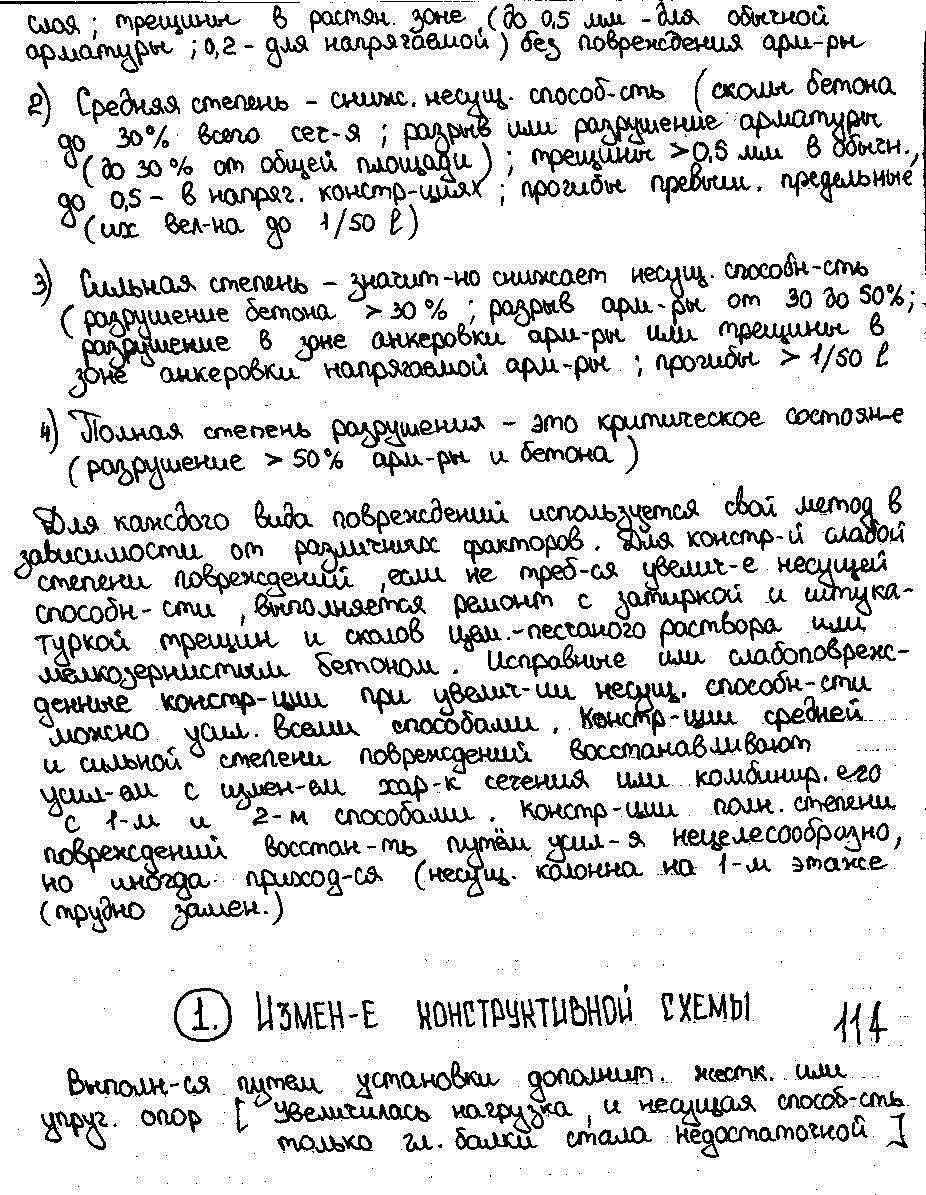 слоя; трещины в растян. зоне (до 0,5 мм - для обычной
арматуры; 0,2 - для напрягаемой) без повреждения арм-ры
2) Средняя степень - сниж. несущ. способ-сть (сколы бетона
до 30% всего сеч-я; разрыв или разрушение арматуры
(до 30% от общей площади); трещины >0,5 мм в обычн.,
до 0,5 - в напряг. констр-циях; прогибы превыш. предельные
(их вел-на до 1/50 l)
3) Сильная степень - значит-но снижает несущ. способн-сть
(разрушение бетона >30%; разрыв арм-ры от 30 до 50%;
разрушение в зоне анкеровки арм-ры или трещины в
зоне анкеровки напрягаемой арм-ры; прогибы > 1/50 l
4) Полная степень разрушения - это критическое состоян-е
(разрушение >50% арм-ры и бетона)
Для каждого вида повреждений используется свой метод в
зависимости от различных факторов. Для констр-й слабой
степени повреждений, если не треб-ся увелич-е несущей
способн-сти, выполняется ремонт с затиркой и штука-
туркой трещин и сколов цем.-песчаного раствора или
мелкозернистым бетоном. Исправные или слабоповреж-
денные констр-ции при увелич-ии несущ. способн-сти
можно усил. всеми способами. Констр-ции средней
и сильной степени повреждений восстанавливают
усил-ем с измен-ем хар-к сечения или комбинир. его
с 1-м и 2-м способами. Констр-ции полн. степени
повреждений восстан-ть путём усил-я нецелесообразно,
но иногда приход-ся (несущ. колонна на 1-м этаже
(трудно замен.)
1. Измен-е конструктивной схемы 114
Выполн-ся путем установки дополнит. жестк. или
упруг. опор [Увеличилась нагрузка, и несущая способ-сть
только гл. балки стала недостаточной]